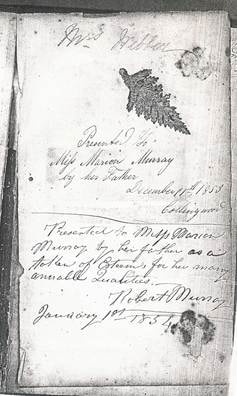 Mrs Webber
Presented to
Miss Marion Murray
by her Father
December 11th 1853
Collingwood
Presented to Miss Marion
Murray by her father as a
token of Esteem for her many
amiable Qualities.
Robert Murray
January 1st 1854